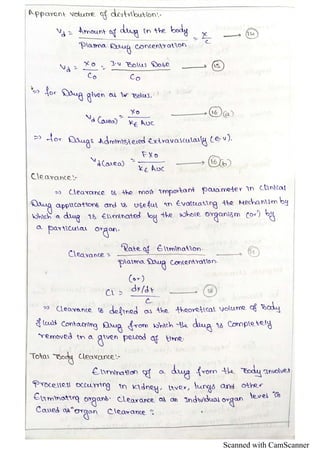 Apparent volume of distribution:-
Vd = Amount of drug in the body / Plasma Drug Concentration = X / C → (14)
Vd = X0 / C0 = I.V Bolus Dose / C0 → (15)
⇒ for Drug given as IV Bolus.
Vd (area) = X0 / KE AUC → (16) (a)
⇒ for Drugs Administered Extravascularly (e.v).
Vd (area) = F X0 / KE AUC → (16/b)
Clearance:-
⇒ Clearance is the most important parameter in clinical
Drug applications and is useful in Evaluating the Mechanism by
which a drug is Eliminated by the whole organism (or) by
a particular organ.
Clearance = Rate of Elimination / Plasma Drug Concentration →
(or)
Cl = dx/dt / C → (18)
⇒ Clearance is defined as the theoretical volume of Body
fluid containing Drug from which the drug is Completely
removed in a given period of time
Total Body Clearance:-
Elimination of a drug from the Body involves
Processes occurring in kidney, liver, lungs and other
Eliminating organs. Clearance at an Individual organ level is
Called as "organ Clearance".
Scanned with CamScanner